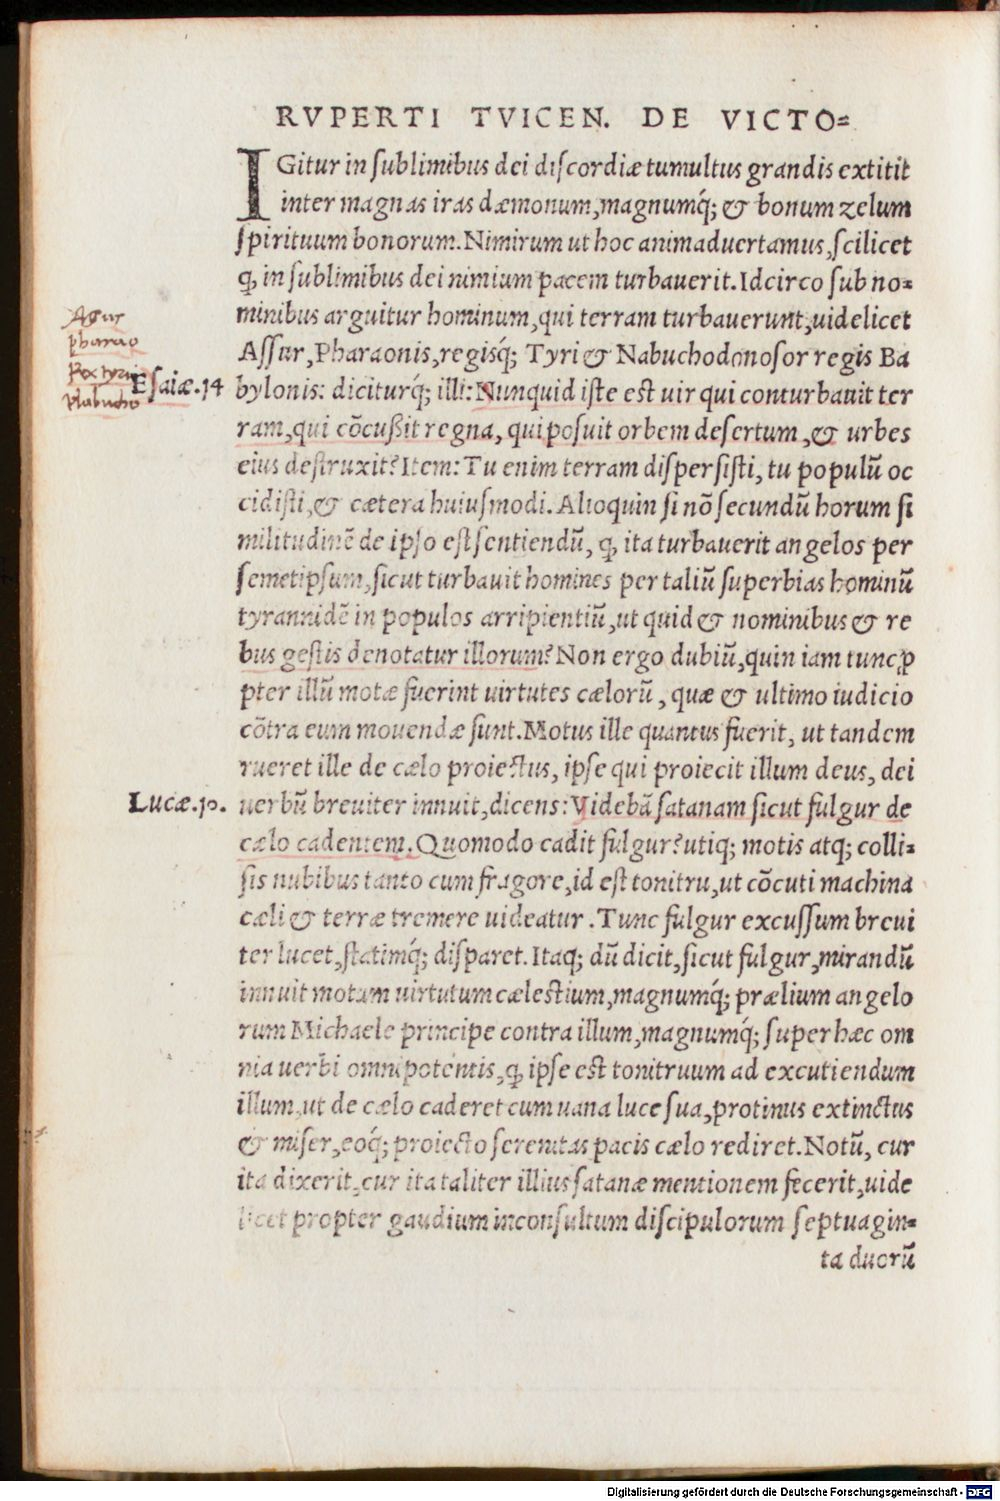 RVPERTI TVICEN. DE VICTO=
IGitur in ſublimibus dei diſcordiæ tumultus grandis extitit
inter magnas iras dæmonum, magnumq́; & bonum zelum
ſpirituum bonorum. Nimirum ut hoc animaduertamus, ſcilicet
ꝙ in ſublimibus dei nimium pacem turbauerit. Idcirco ſub no=
minibus arguitur hominum, qui terram turbauerunt, uidelicet
Aſſur, Pharaonis, regisq́; Tyri & Nabuchodonoſor regis Ba
pharao
Rex tyri
Eſaiæ. 14
bylonis: diciturq́; illi: Nunquid iſte eſt uir qui conturbauit ter
ram, qui cõcußit regna, qui poſuit orbem deſertum, & urbes
eius deſtruxit? Item: Tu enim terram diſperſiſti, tu populũ oc
cidiſti, & cætera huiuſmodi. Alioquin ſi nõ ſecundũ horum ſi
militudinẽ de ipſo eſt ſentiendũ, ꝙ ita turbauerit angelos per
ſemetipſum, ſicut turbauit homines per taliũ ſuperbias hominũ
tyrannidẽ in populos arripientiũ, ut quid & nominibus & re
bus geſtis denotatur illorum? Non ergo dubiũ, quin iam tunc ꝓ
pter illũ motæ fuerint uirtutes cælorũ, quæ & ultimo iudicio
cõtra eum mouendæ ſunt. Motus ille quantus fuerit, ut tandem
rueret ille de cælo proiectus, ipſe qui proiecit illum deus, dei
Lucæ. 10.
uerbũ breuiter innuit, dicens: Videbã ſatanam ſicut fulgur de
cælo cadentem. Quomodo cadit fulgur? utiq; motis atq; colli=
ſis nubibus tanto cum fragore, id eſt tonitru, ut cõcuti machina
cæli & terræ tremere uideatur. Tunc fulgur excuſſum breui
ter lucet, ſtatimq́; diſparet. Itaq; dũ dicit, ſicut fulgur, mirandũ
innuit motum uirtutum cæleſtium, magnumq́; prælium angelo
rum Michaele principe contra illum, magnumq́; ſuper hæc om
nia uerbi omnipotentis, ꝙ ipſe eſt tonitruum ad excutiendum
illum, ut de cælo caderet cum uana luce ſua, protinus extinctus
& miſer, eoq́; proiecto ſerenitas pacis cælo rediret. Notũ, cur
ita dixerit, cur ita taliter illius ſatanæ mentionem fecerit, uide
licet propter gaudium inconſultum diſcipulorum ſeptuagin=
ta duorũ
Digitalisierung gefördert durch die Deutsche Forschungsgemeinschaft - DFG